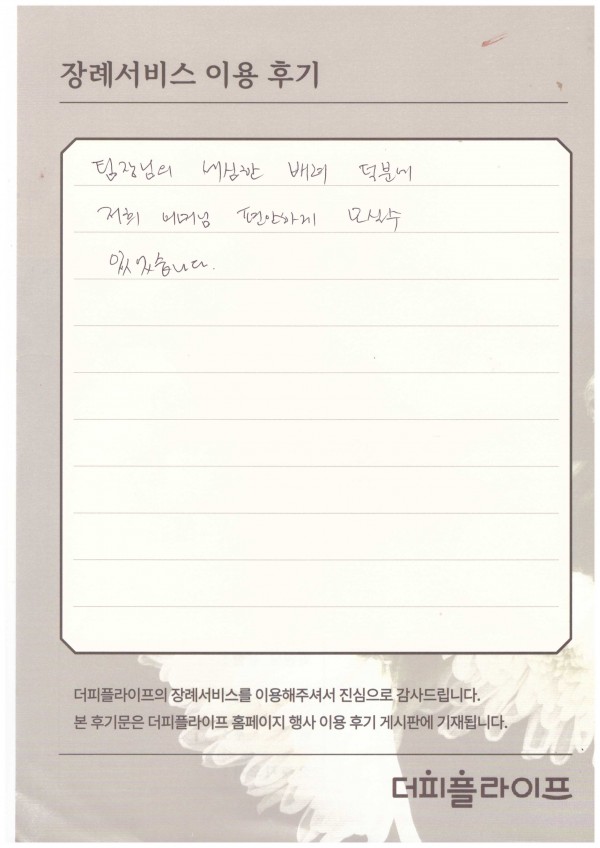 장례서비스 이용 후기
팀장님의 세심한 배려 덕분에
저희 어머님 편안하게 모실수
있었습니다.
더피플라이프의 장례서비스를 이용해주셔서 진심으로 감사드립니다.
본 후기문은 더피플라이프 홈페이지 행사 이용 후기 게시판에 기재됩니다.
더피플라이프